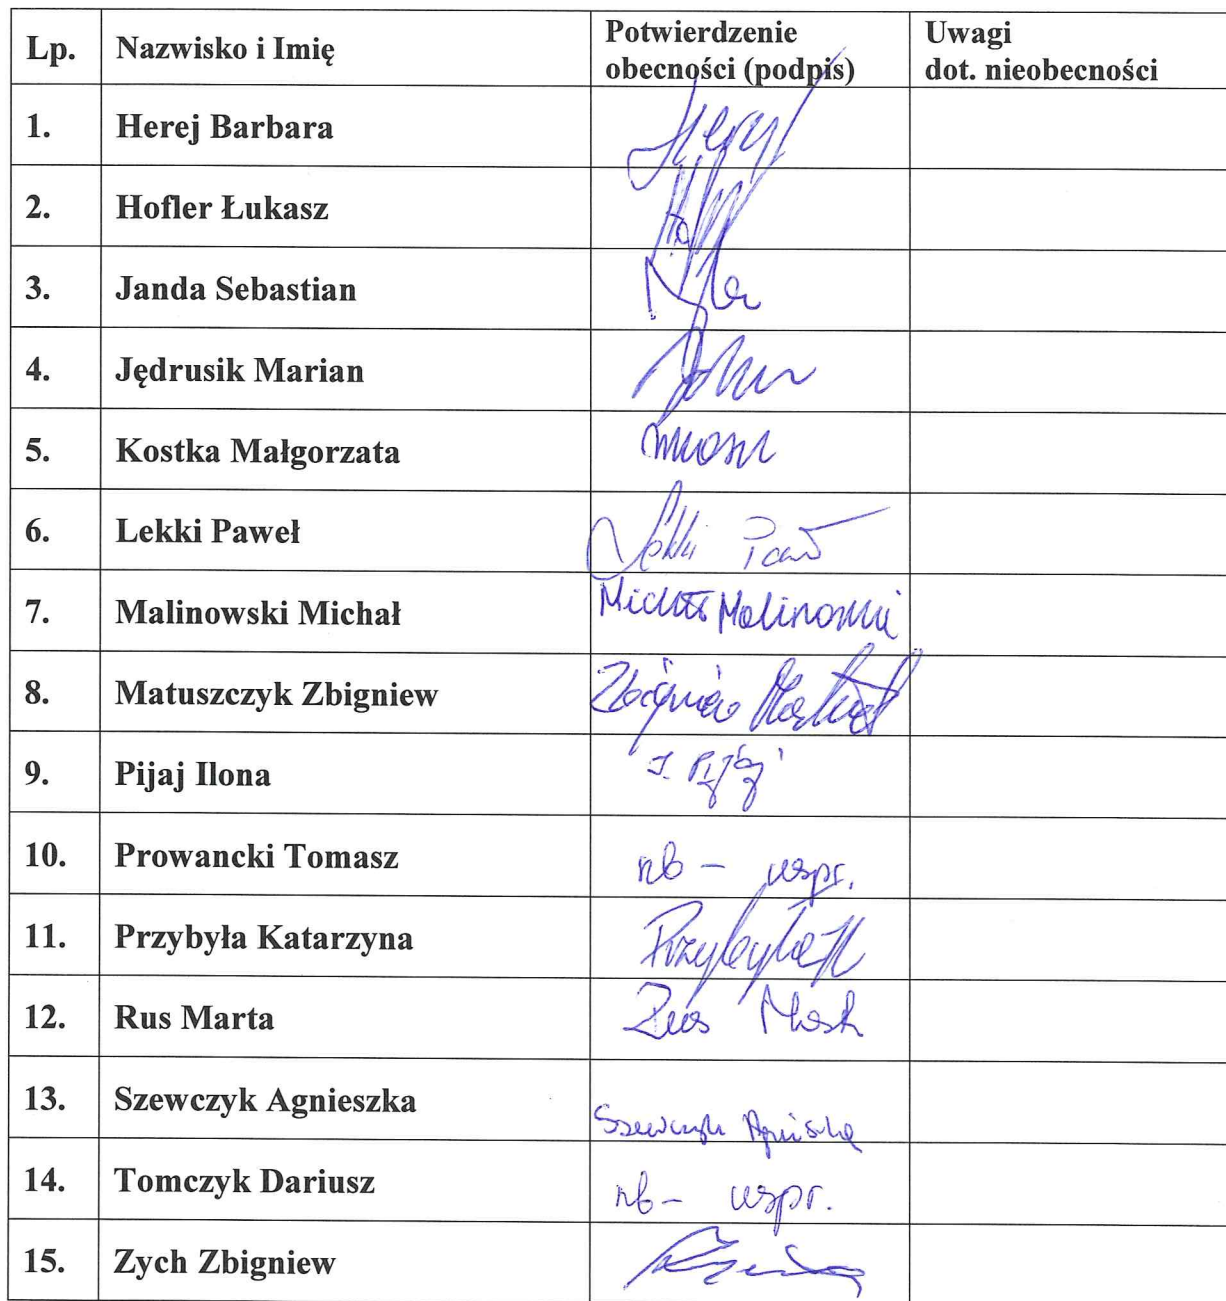 Lp. Nazwisko i Imię Potwierdzenie obecności (podpis) Uwagi dot. nieobecności
1. Herej Barbara
2. Hofler Łukasz
3. Janda Sebastian
4. Jędrusik Marian
5. Kostka Małgorzata
6. Lekki Paweł Lekki
7. Malinowski Michał Michał Malinowski
8. Matuszczyk Zbigniew Zbigniew
9. Pijaj Ilona I. Pijaj
10. Prowancki Tomasz nb - uspr.
11. Przybyła Katarzyna Przybyła K
12. Rus Marta Rus
13. Szewczyk Agnieszka Szewczyk Agnieszka
14. Tomczyk Dariusz nb - uspr.
15. Zych Zbigniew